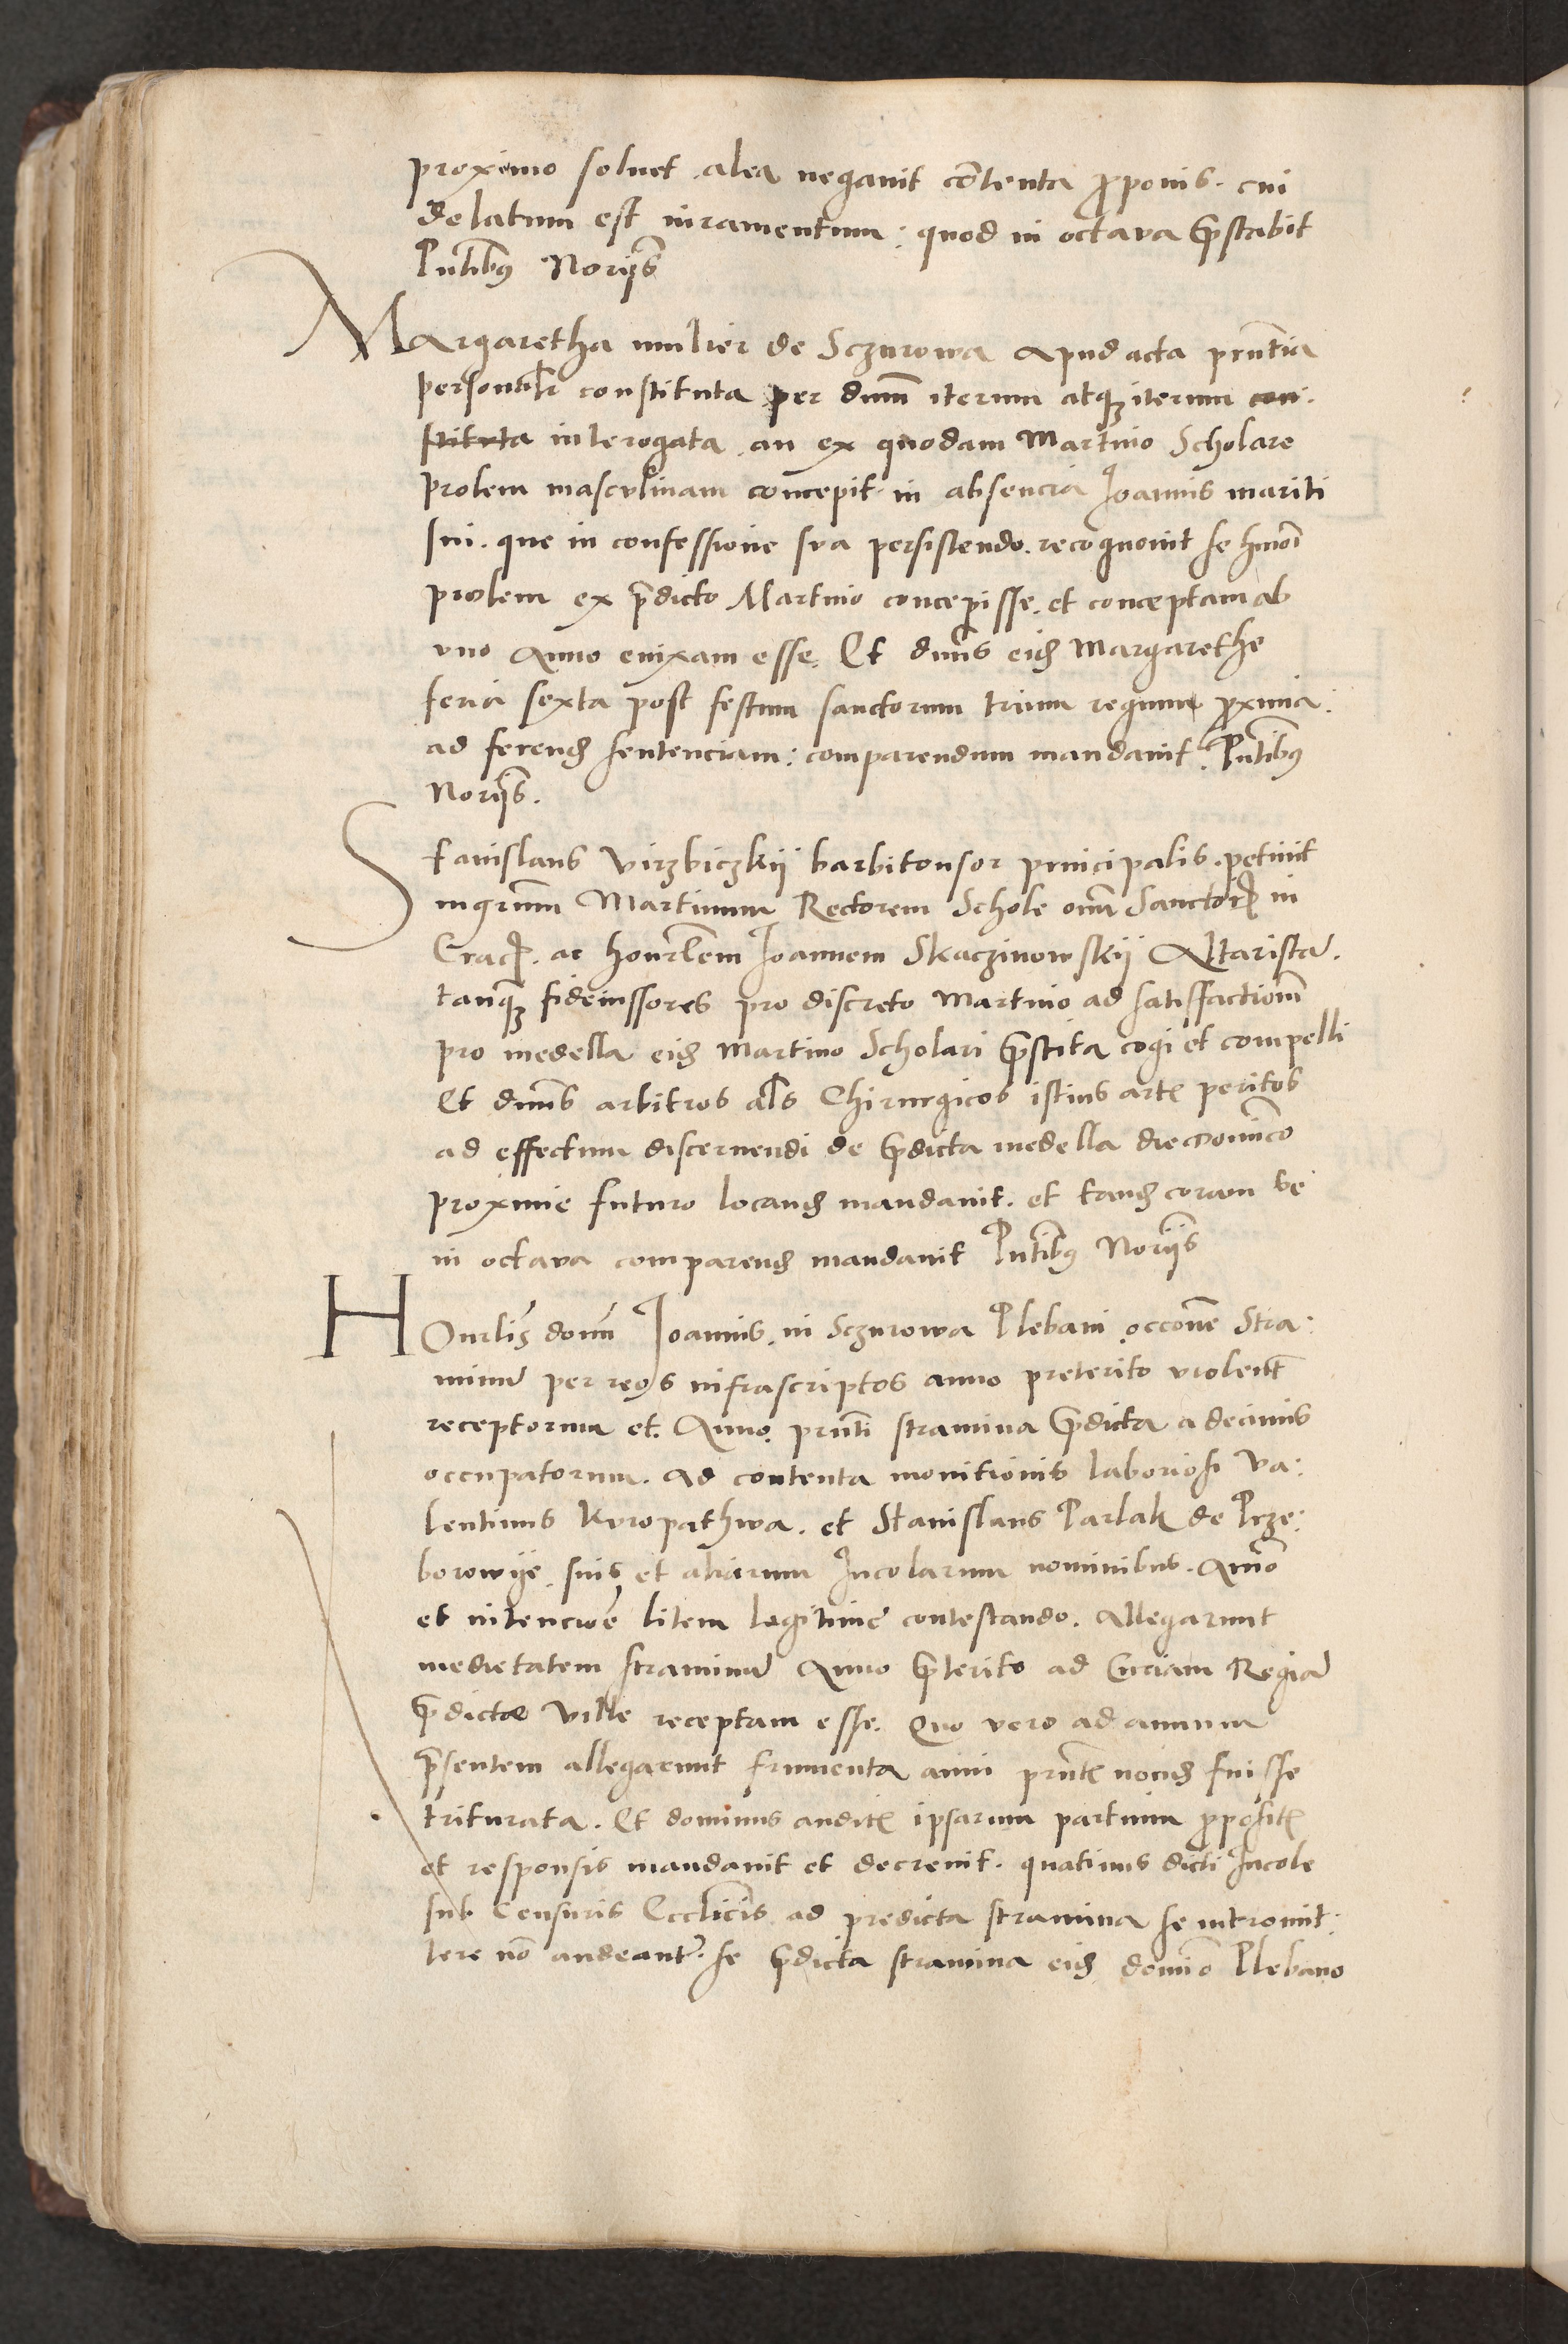 proximo soluet . alea negauit cōtenta p̄ponis . cui
delatum est iuramentum : quod in octaua p̄stabit
Pn̄tibꝰ Norijs
Margaretha mulier de Sczurowa Apud acta pn̄tia
personalr̄ constituta per dnūm iterum atqꝫ iterum con.
stituta interogata . an ex quodam Martino Scholare
prolem masculinam concepit . in absencia Joannis mariti
sui . que in confessione sua persistendo . recognouit se hmōi
prolem ex p̄dicto Martino concepisse . et conceptam ab
vno Anno enixam esse . Et dnūs eiđ Margarethe
feria sexta post festum sanctorum trium regum p̄xima :
ad ferenđ sentenciam : comparendum mandauit . Pn̄tibꝰ
Norijs .
Stanislaus Virzbiczkij barbitonsor principalis . petiuit
mgrūm Martinum Rectorem Schole om̄ Sanctoꝝ in
Cracꝫ . ac honrlēm Joannem Skaczinowskij Altaristā .
tanqꝫ fideiussores pro discreto Martino ad satisfactionē
pro medella eiđ Martino Scholari p̄stita cogi et compelli
Et dnūs arbitros als̄ Chirurgicos istius artꝭ peritos
ad effectum discernendi de p̄dicta medella die Dominico
proxime futuro locanđ mandauit . et tanđ coram se
in octaua comparenđ mandauit Pn̄tibꝰ Norijs
HOnrlis̄ domī Joannis . in Sczurowa Plebani occōne Stra :
minū per reos infrascriptos anno preterito violentꝭ
receptorum et . Anno . pn̄ti stramina p̄dicta a decimis
occupatorum . ad contenta monitionis laboriosi Va :
lentinus Kuropathwa . et Stanislaus Parlak de Prze :
borowije . suis et aliarum Incolarum nominibus . Animō
et intenciōe litem legitime contestando . Allegarunt
medietatem straminū Anno p̄terito ad Curiam Regiā
p̄dicte Ville receptam esse . Quo vero ad annum
p̄sentem allegarunt frumenta anni pn̄tꝭ nonđ fuisse
triturata . Et dominus auditꝭ ipsarum partium p̄positꝭ
et responsis mandauit et decreuit . quatinus dicti Incole
sub Censuris Ecclicis̄ ad predicta stramina se intromit :
tere nō audeant . se p̄dicta stramina eiđ domīo Plebano